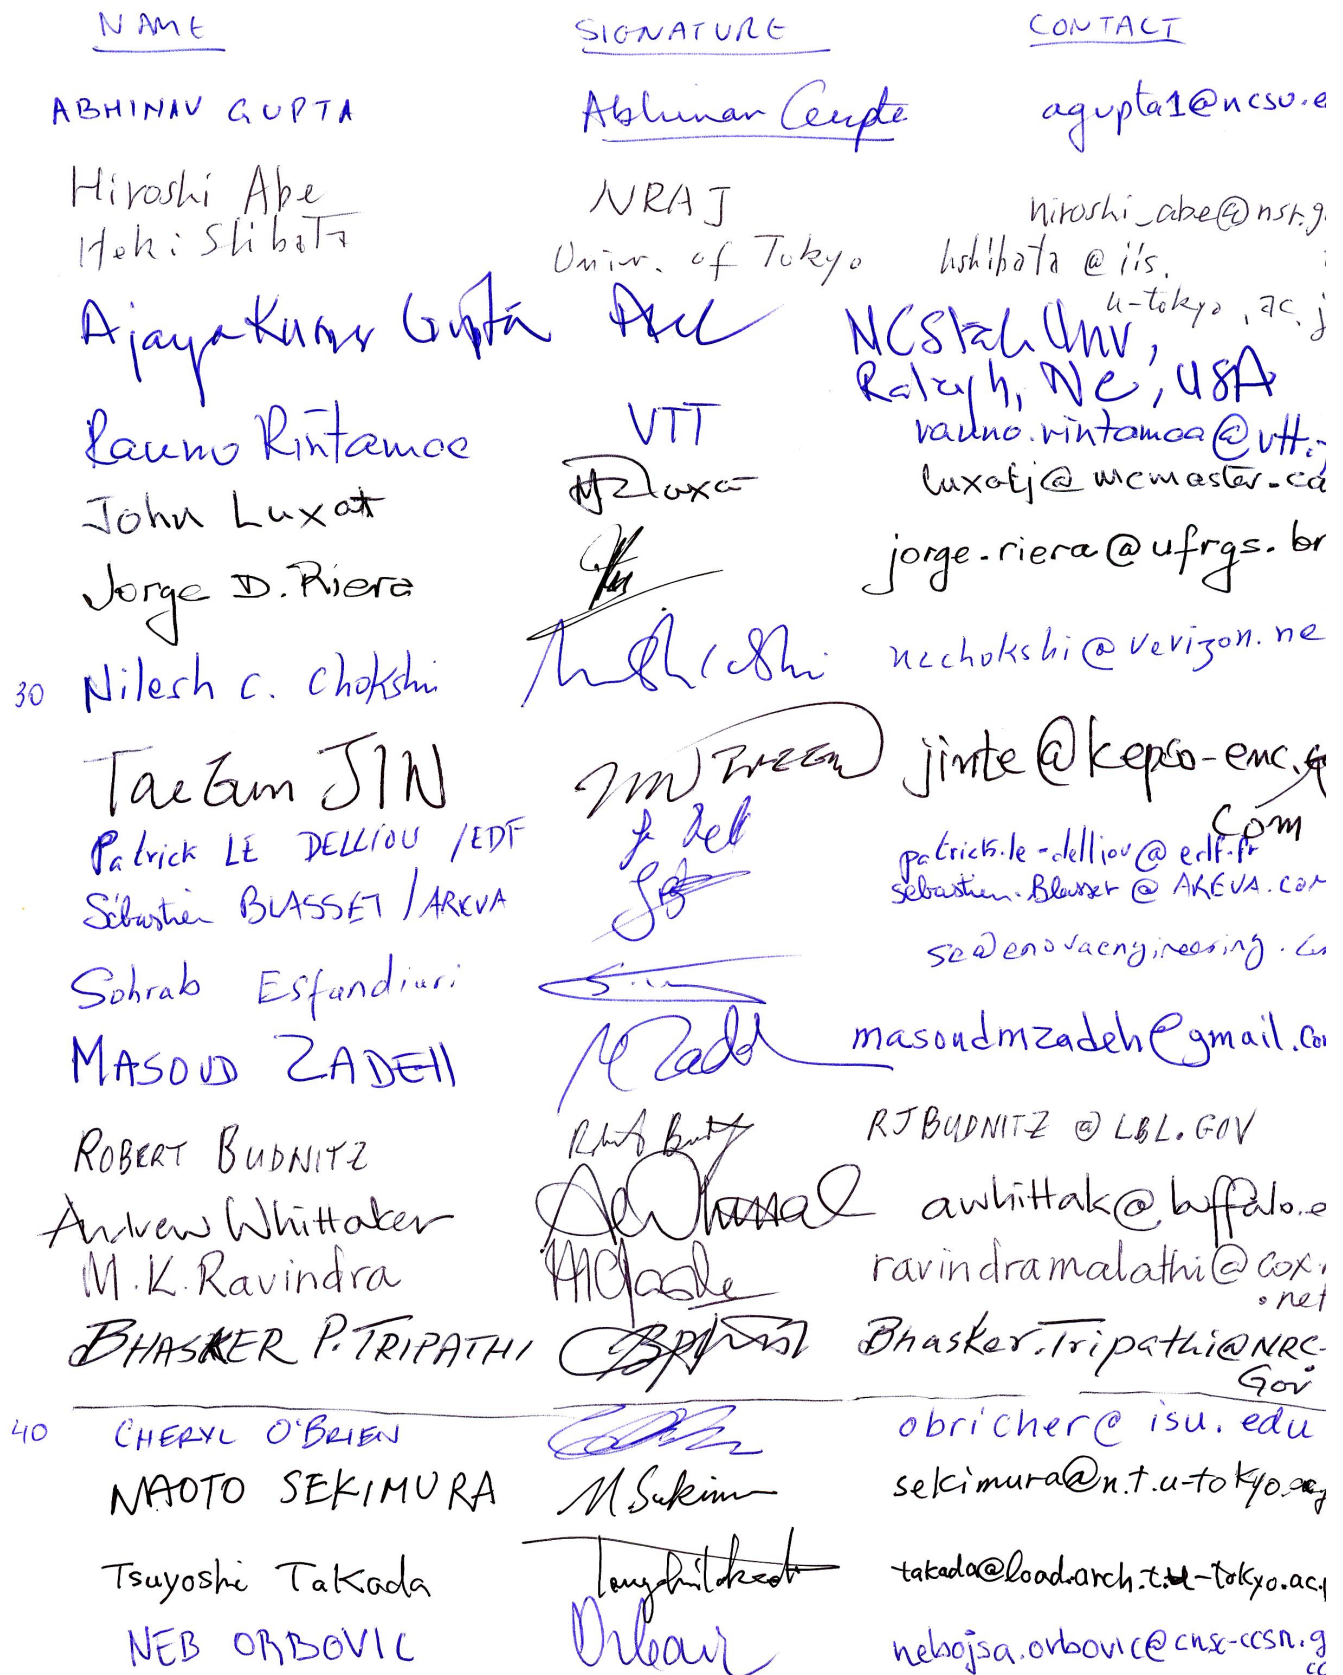 NAME SIGNATURE CONTACT
ABHINAV GUPTA Abhinav Gupta agupta1@ncsu.e
Hiroshi Abe NRAJ hiroshi_abe@nsr.g
Heki Shibata Univ. of Tokyo hshibata @ iis.
u-tokyo.ac.j
Ajaya Kumar Gupta NCState Unv,
Raleigh, NC, USA
Rauno Rintamaa VTT rauno.rintamaa@vtt.
John Luxat luxatj@mcmaster.ca
Jorge D. Riera jorge.riera@ufrgs.br
30 Nilesh C. Chokshi nechokshi@verizon.ne
TaeEun JIN jinte@kepco-enc.
com
Patrick LE DELLIOU /EDF patrick.le-delliou@edf.fr
Sébastien BLASSET /AREVA sebastien.Blasset @ AREVA.COM
Sohrab Esfandiari se@enovaengineering.
MASOUD ZADEH M Zadeh masoudmzadeh@gmail.com
ROBERT BUDNITZ RJBUDNITZ @ LBL.GOV
Andrew Whittaker awhittak@buffalo.e
M.K. Ravindra ravindramalathi@cox.
.net
BHASKER P. TRIPATHI Bhasker.Tripathi@NRC.
Gov
40 CHERYL O'BRIEN obricher@isu.edu
NAOTO SEKIMURA N. Sekimura sekimura@n.t.u-tokyo.ac
Tsuyoshi Takada takada@load.arch.t.u-tokyo.ac.
NEB ORBOVIC nebojsa.orbovic@cnsc-ccsn.g